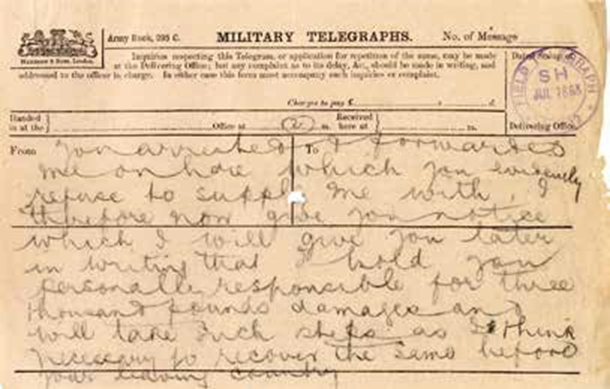 Army Book, 295 C.
MILITARY TELEGRAPHS.
No. of Message
HARRISON & SONS, London.
Inquiries respecting this Telegram, or application for repetition of the same, may be made
at the Delivering Office; but any complaint as to its delay, &c., should be made in writing, and
addressed to the officer in charge. In either case this form must accompany such inquiries or complaint.
Dated Stamp of
FIELD TELEGRAPH
SH
JUL
Charges to pay £ s. d.
Handed in at the } Office at m. Received here at } m.
Delivering Office
From To
You arrested & forwarded
me on here which you evidently
refuse to supply me with. I
therefore now give you notice
which I will give you later
in writing that I hold you
personally responsible for three
thousand pounds damages and
will take such steps as I think
necessary to recover the same before
your leaving country